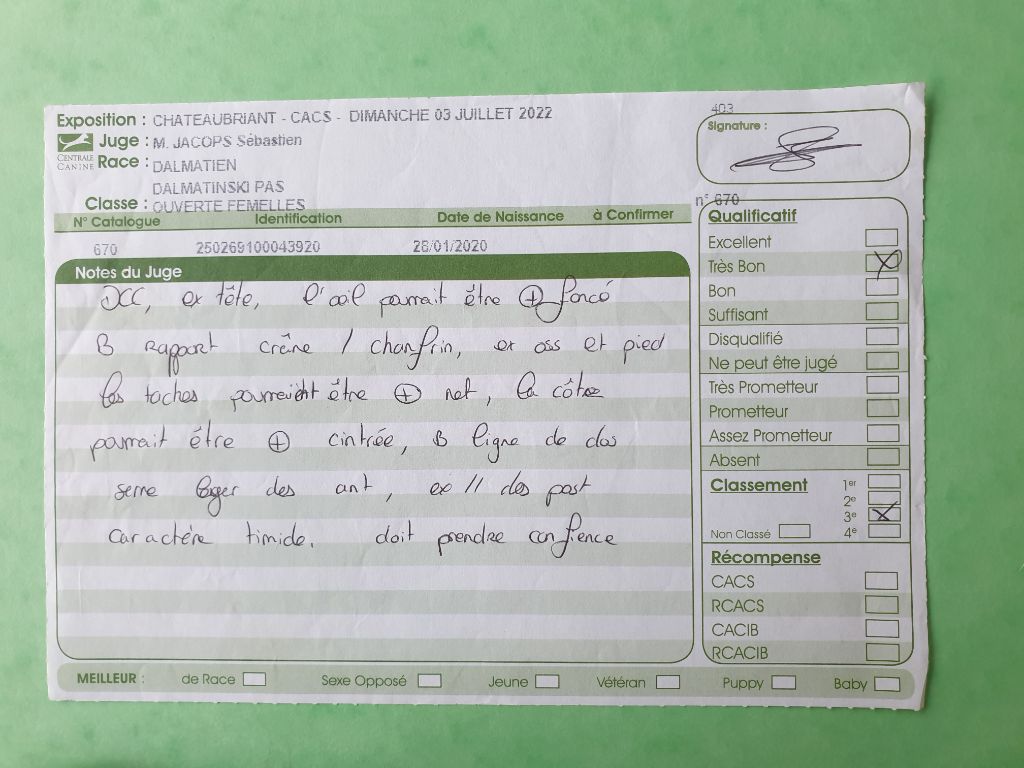 403
Exposition : CHATEAUBRIANT - CACS - DIMANCHE 03 JUILLET 2022
Juge : M. JACOPS Sébastien
CENTRALE CANINE
Race : DALMATIEN
DALMATINSKI PAS
Classe : OUVERTE FEMELLES
Signature :
n° 670
N° Catalogue Identification Date de Naissance à Confirmer
670 250269100043920 28/01/2020
Notes du Juge
DCC, ex tête, l'oeil pourrait être + foncé
B rapport crâne / chanfrin, ex oss et pied
les taches pourraient être + net, la côtes
pourrait être + cintrée, B ligne de dos
serre léger des ant, ex // des post
caractère timide. doit prendre confience
Qualificatif
Excellent
Très Bon X
Bon
Suffisant
Disqualifié
Ne peut être jugé
Très Prometteur
Prometteur
Assez Prometteur
Absent
Classement 1er
2e
3e X
Non Classé 4e
Récompense
CACS
RCACS
CACIB
RCACIB
MEILLEUR : de Race Sexe Opposé Jeune Vétéran Puppy Baby